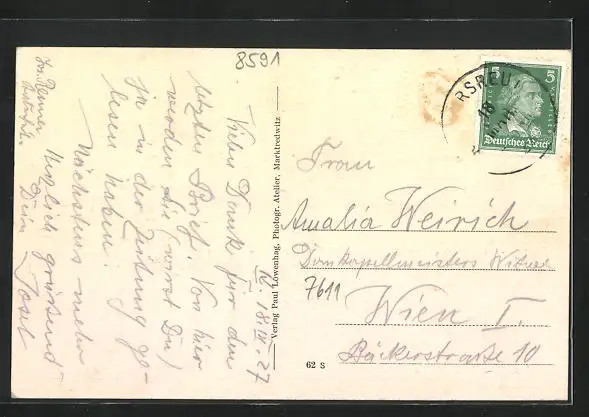 8591
W. 18.IV.27
Vielen Dank für den
letzten Brief. Von hier
werden Sie (wirst Du)
ja in der Zeitung ge-
lesen haben.
Nächstens mehr
Herzlich grüssend
Dein Josl
Jos. Renner
Verlag Paul Löwenhag, Photogr. Atelier, Marktredwitz
62 S
5
5
Deutsches Reich
18
Frau
Amalia Weirich
Domkapellmeisters Witwe
7611
Wien I.
Bäckerstraße 10